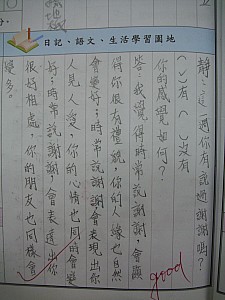 日記、語文、生活學習園地
靜：這一週你有說過謝謝嗎？
（✓）有（ ）沒有
你的感覺如何？
答：我覺得時常說謝謝，會讓
得你很有禮貌，你的人緣也自然
會變好；時常說謝謝會表現出你
人見人愛，你的心情也同的會變
好；時常說謝謝，會表達出你
很好相處，你的朋友也同樣會
變多。
good